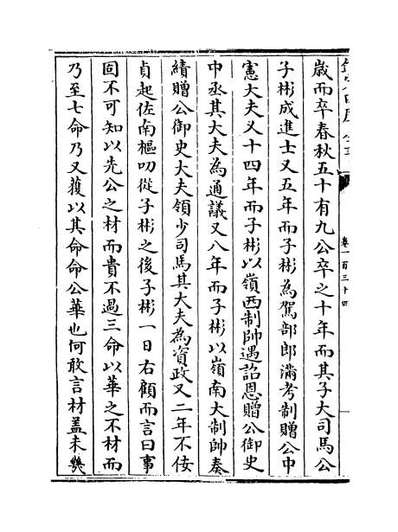 卷一百三十四
歲而卒春秋五十有九公卒之十年而其子大司馬公
子彬成進士又五年而子彬為駕部郎滿考制贈公中
憲大夫又十四年而子彬以嶺西制帥遇詔恩贈公御史
中丞其大夫為通議又八年而子彬以嶺南大制帥奏
績贈公御史大夫領少司馬其大夫為資政又二年不佞
貞起佐南樞叨從子彬之後子彬一日右顧而言曰事
固不可知以先公之材而貴不過三命以華之不材而
乃至七命乃又獲以其命命公華也何敢言材蓋未幾